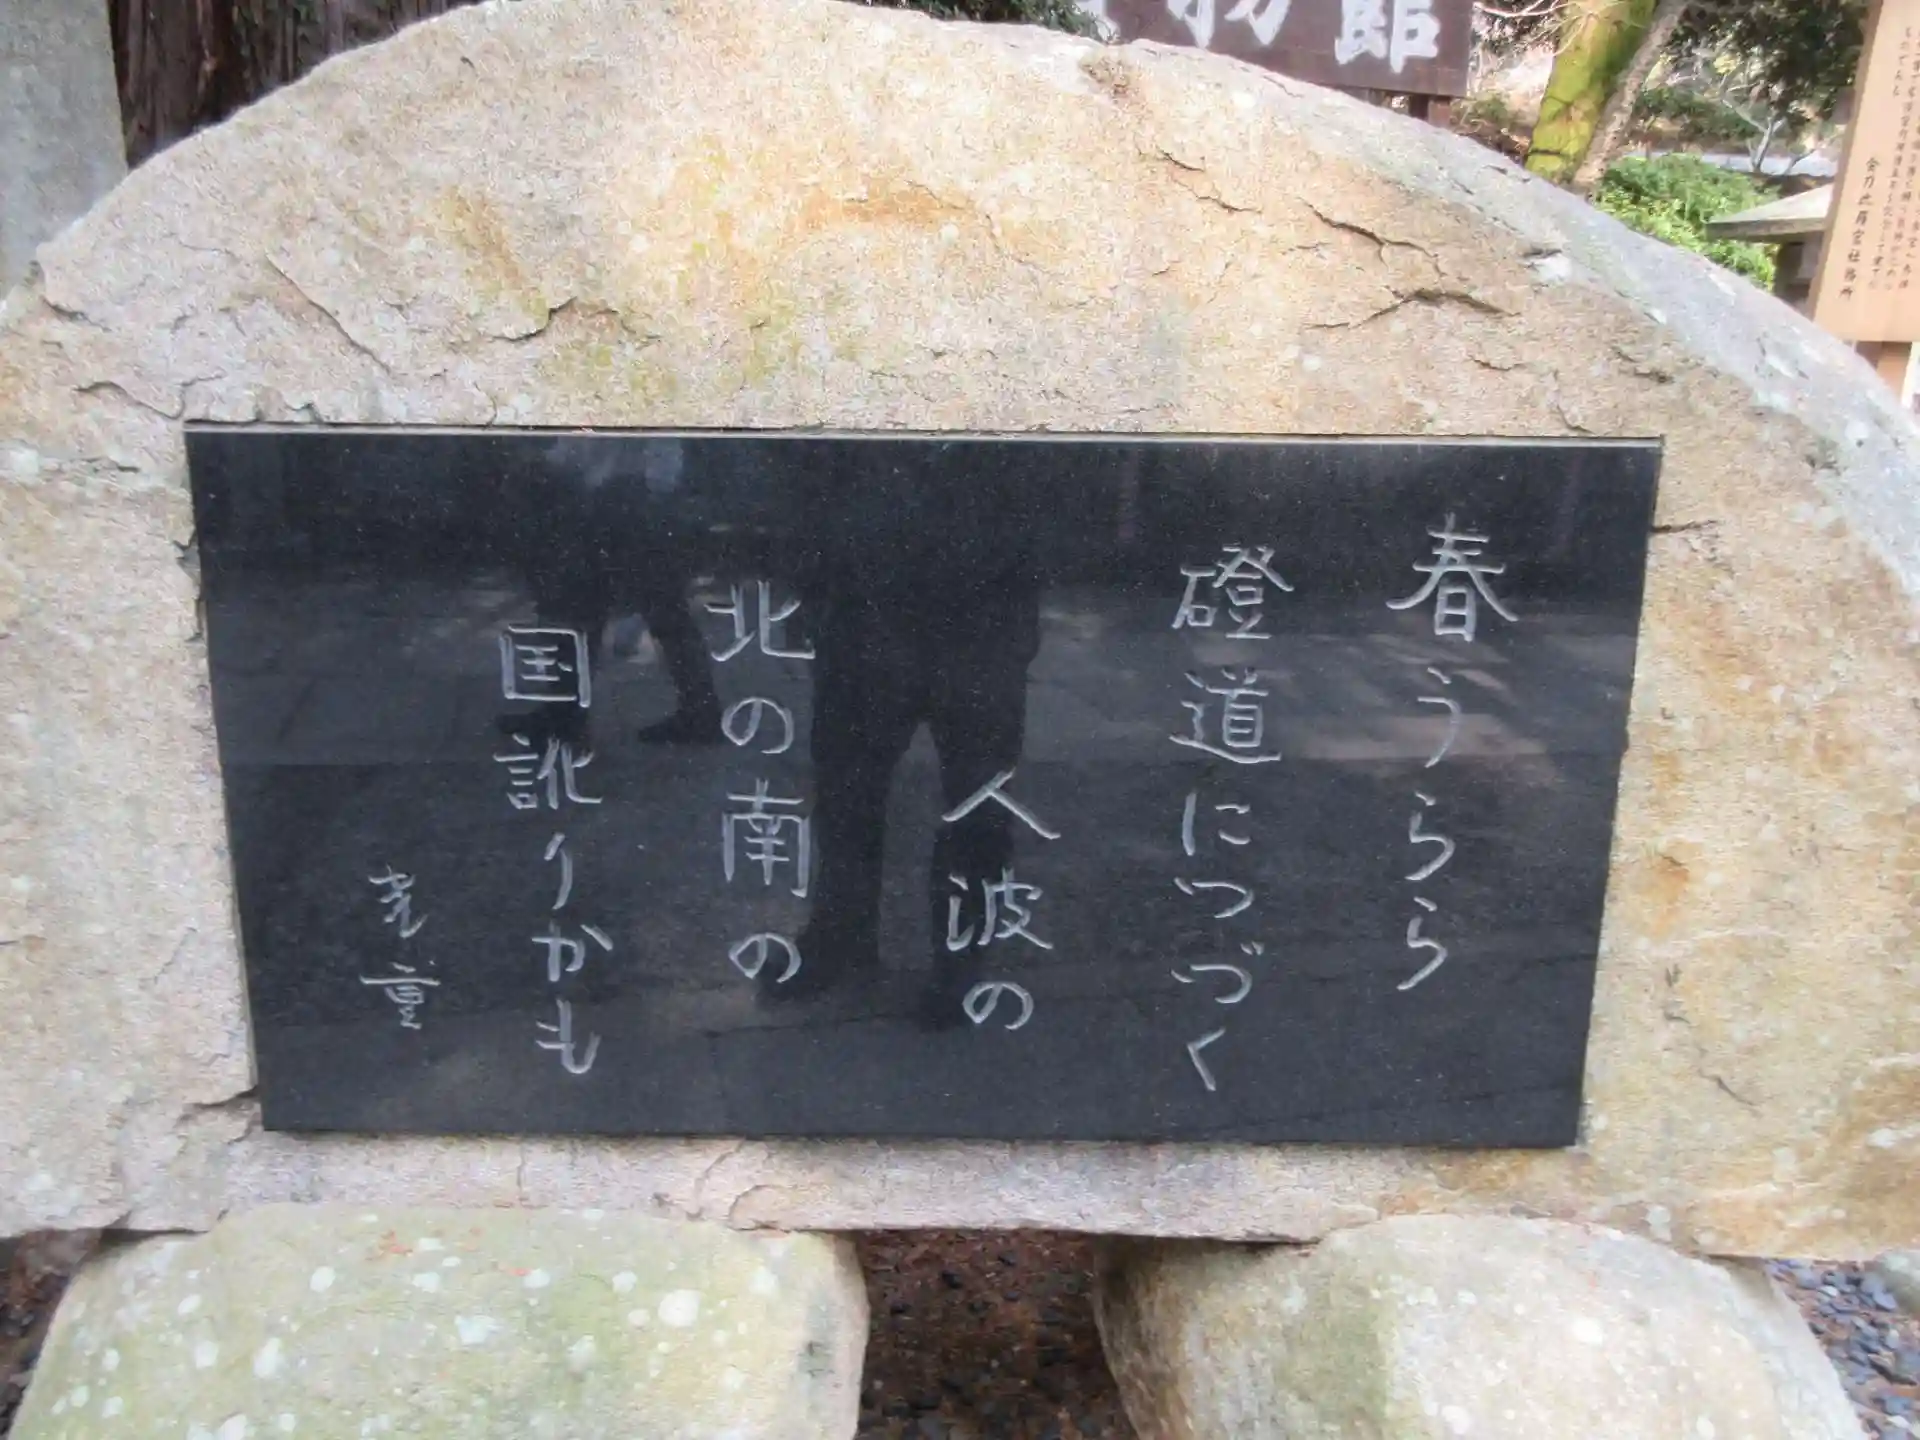 春うらら
磴道につづく
人波の
北の南の
国訛りかも
物館
金刀比羅宮社務所